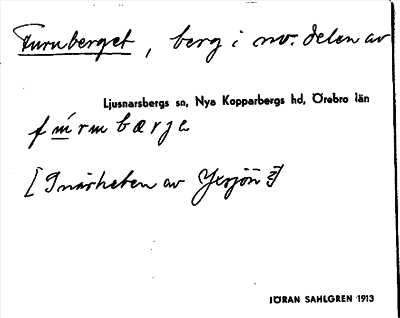 Furnberget, berg i nv. delen av
Ljusnarsbergs sn, Nya Kopparbergs hd, Örebro län
[I närheten av Yxsjön]
JÖRAN SAHLGREN 1913